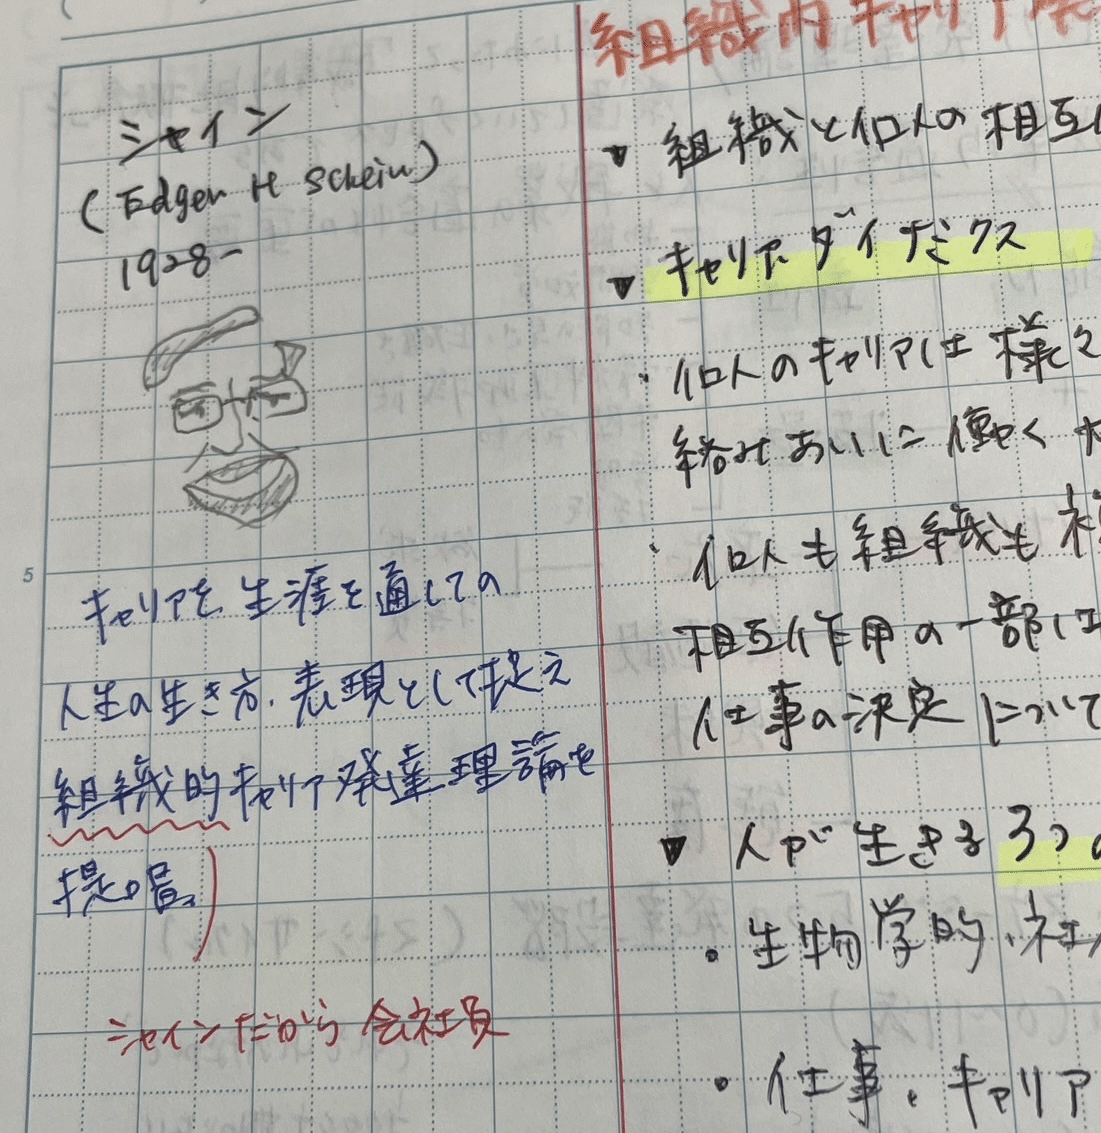 シャイン
(Edgen H Schein)
1928-
5
キャリアを生涯を通しての
人生の生き方、表現として捉え
組織的キャリア発達理論を
提唱。
シャインだから会社員
組織内キャリア
▼ 組織と個人の相互
▼ キャリアダイナミクス
・個人のキャリアは様々
絡みあいに働く
・個人も組織も
相互作用の一部は
仕事の決定について
▼ 人が生きる3つ
・生物学的、社
・仕事、キャリア